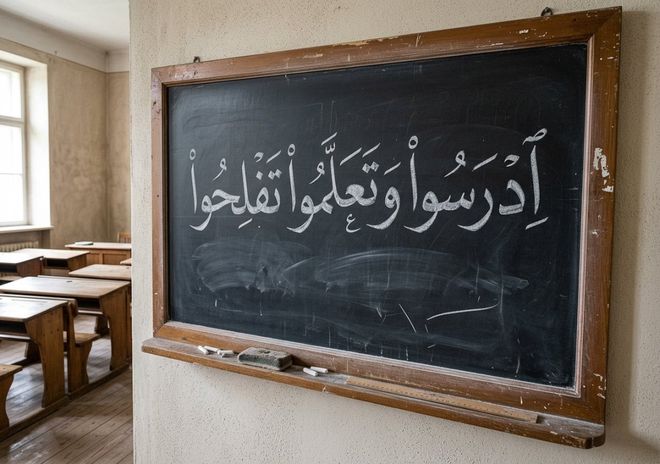 اِدْرَسُواْ وَتَعَلَّمُواْ تَفْلِحُواْ